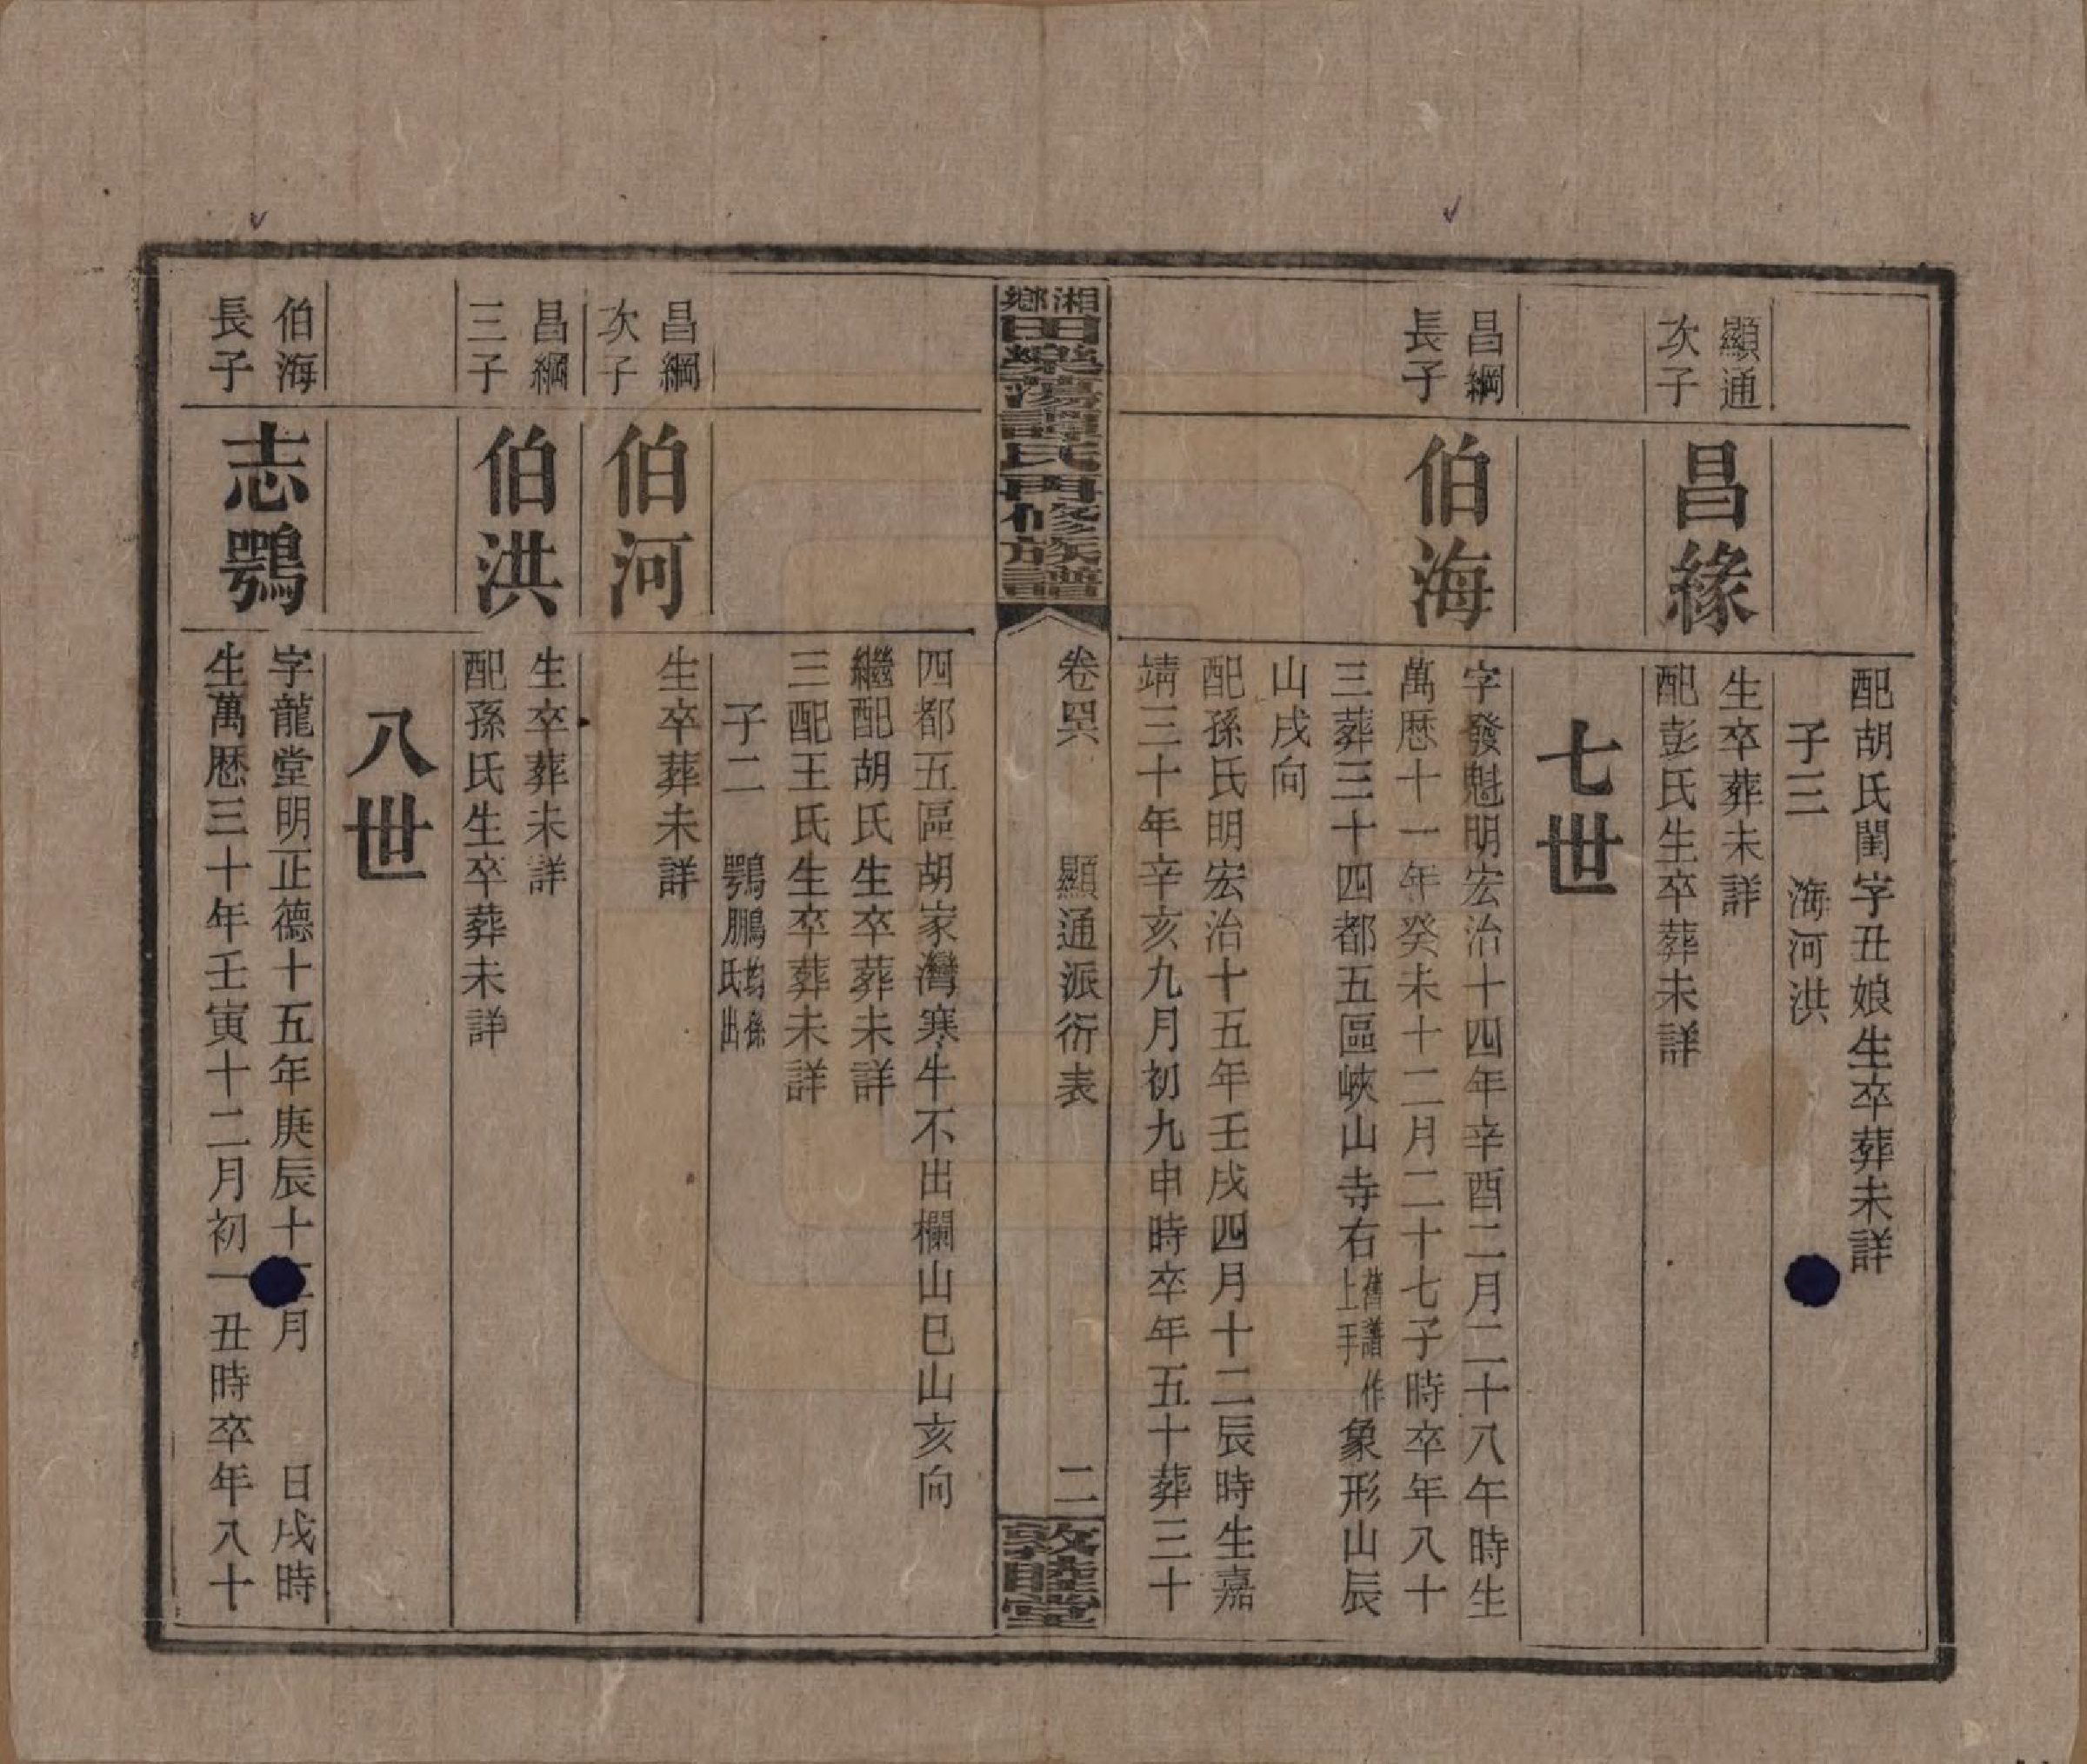 配胡氏閨字丑娘生卒葬未詳
子三　海河洪
顯通
次子
昌緣
生卒葬未詳
配彭氏生卒葬未詳
七世
昌綱
長子
伯海
字發魁明宏治十四年辛酉二月二十八午時生
萬歷十一年癸未十二月二十七子時卒年八十
三葬三十四都五區峽山寺右舊譜作上手象形山辰
山戌向
配孫氏明宏治十五年壬戌四月十二辰時生嘉
靖三十年辛亥九月初九申時卒年五十葬三十
湘鄉田樂蕩譚氏再修族譜
卷四　顯通派衍表　二
敦睦堂
四都五區胡家灣寒牛不出欄山巳山亥向
繼配胡氏生卒葬未詳
三配王氏生卒葬未詳
子二　鶚鵬均係孫氏出
昌綱
次子
伯河
生卒葬未詳
昌綱
三子
伯洪
生卒葬未詳
配孫氏生卒葬未詳
八世
伯海
長子
志鶚
字龍堂明正德十五年庚辰十月　日戌時
生萬歷三十年壬寅十二月初一丑時卒年八十